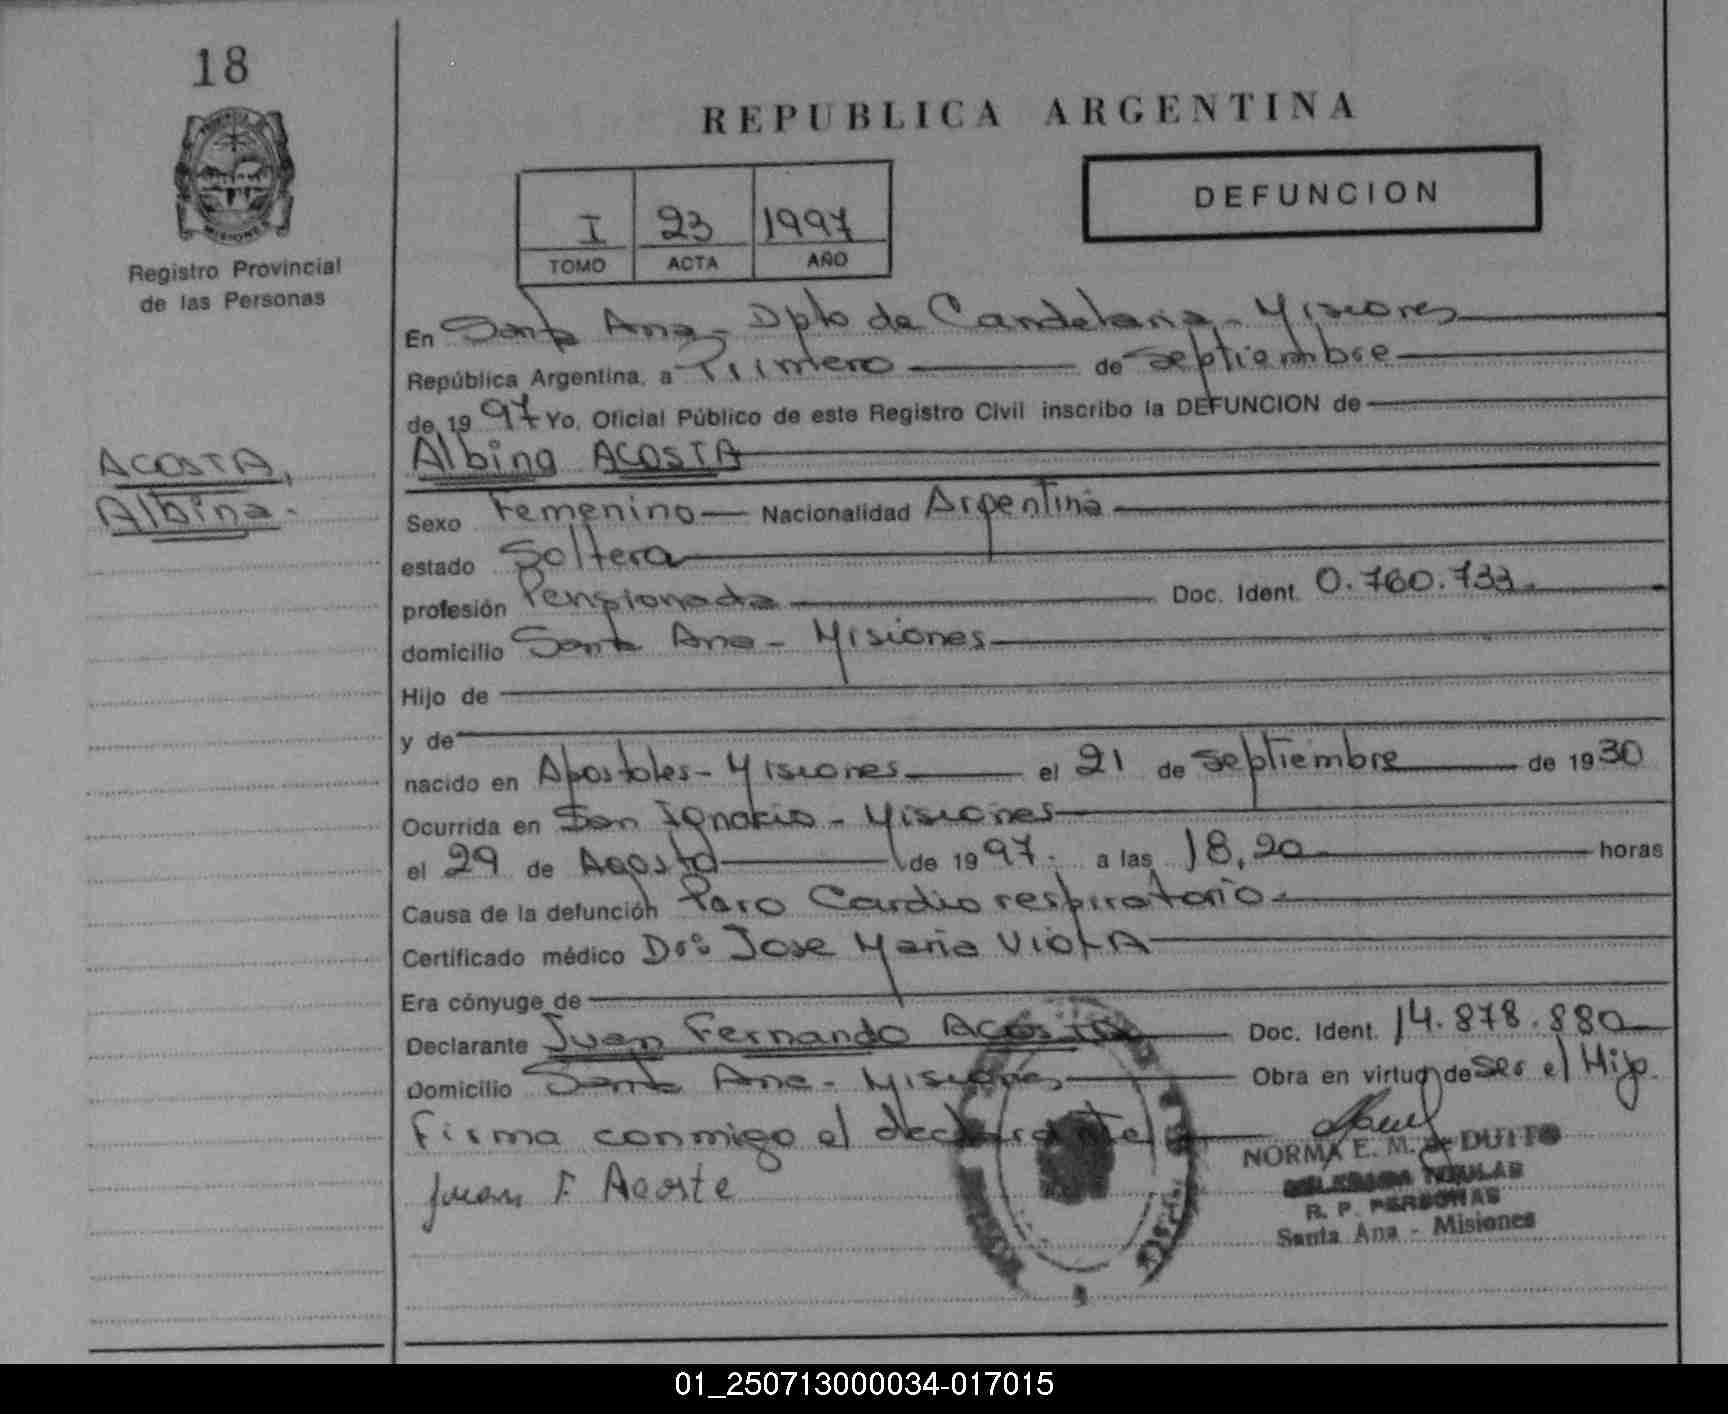 18
REPUBLICA ARGENTINA
DEFUNCION
I 23 1997
TOMO ACTA AÑO
MISIONES
Registro Provincial
de las Personas
ACOSTA,
Albina.
En Santa Ana - Dpto de Candelaria - Misiones
República Argentina, a Primero de Septiembre
de 1997 Yo, Oficial Público de este Registro Civil inscribo la DEFUNCION de
Albina ACOSTA
Sexo Femenino Nacionalidad Argentina
estado Soltera
profesión Pensionada Doc. Ident. 0.760.733.
domicilio Santa Ana - Misiones
Hijo de
y de
nacido en Apostoles - Misiones el 21 de Septiembre de 1930
Ocurrida en San Ignacio - Misiones
el 29 de Agosto de 1997. a las 18,20 horas
Causa de la defunción Paro Cardio respiratorio
Certificado médico Dr: Jose Maria VIOLA
Era cónyuge de
Declarante Juan Fernando ACOSTA Doc. Ident. 14.878.880
Domicilio Santa Ana - Misiones Obra en virtud de ser el Hijo.
Firma conmigo el declarante
Juan F. Acosta
NORMA E. M. de DUITO
DELEGADA TITULAR
R. P. PERSONAS
Santa Ana - Misiones
01_250713000034-017015